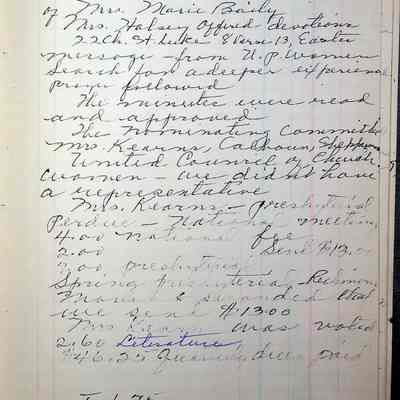 of Mrs. Marie Baily
Mrs. Halsey offered devotions
22 Ch. St. Luke 8 Verse 13, Easter
message - from U.P. Women
Search for a deeper experience
prayer followed
The minutes were read
and approved
The nominating Committe
Mrs. Kearns, Calhoun,
United Council of Church
Women - we did not have
a representative
Mrs. Kearns - presbyterial
Perdue - National meeting
4.00 National fee
2.00 Send $13.00
7.00 presbyterial
Spring Presbyterial Richmond
Moved & seconded that
we send $13.00
Mrs. Kearns was voted
2.60 Literature
$46.25 Quarterly dues paid